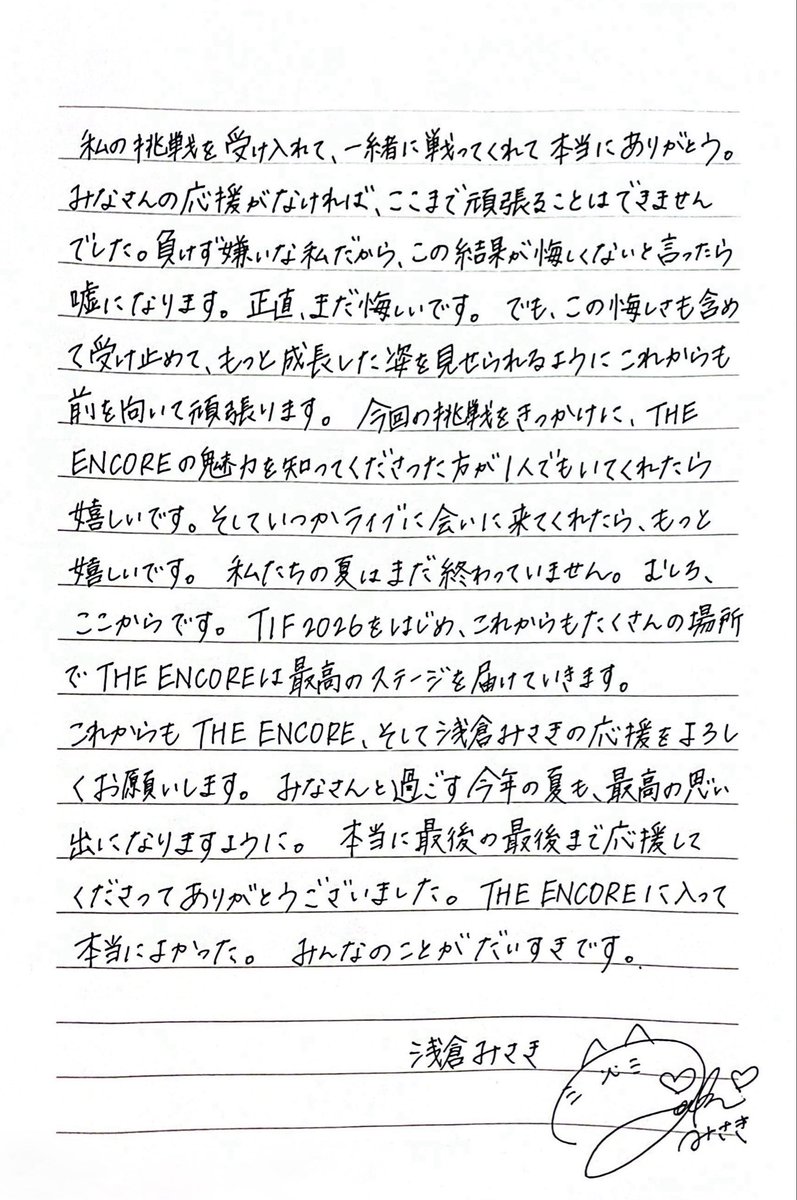 私の挑戦を受け入れて、一緒に戦ってくれて本当にありがとう。
みなさんの応援がなければ、ここまで頑張ることはできません
でした。負けず嫌いな私だから、この結果が悔しくないと言ったら
嘘になります。正直、まだ悔しいです。でも、この悔しさも含め
て受け止めて、もっと成長した姿を見せられるようにこれからも
前を向いて頑張ります。今回の挑戦をきっかけに、THE
ENCOREの魅力を知ってくださった方が1人でもいてくれたら
嬉しいです。そしていつかライブに会いに来てくれたら、もっと
嬉しいです。私たちの夏はまだ終わっていません。むしろ、
ここからです。TIF2026をはじめ、これからもたくさんの場所
でTHE ENCOREは最高のステージを届けていきます。
これからもTHE ENCORE、そして浅倉みさきの応援をよろし
くお願いします。みなさんと過ごす今年の夏も、最高の思い
出になりますように。本当に最後の最後まで応援して
くださってありがとうございました。THE ENCOREに入って
本当によかった。みんなのことがだいすきです。
浅倉みさき
みさき